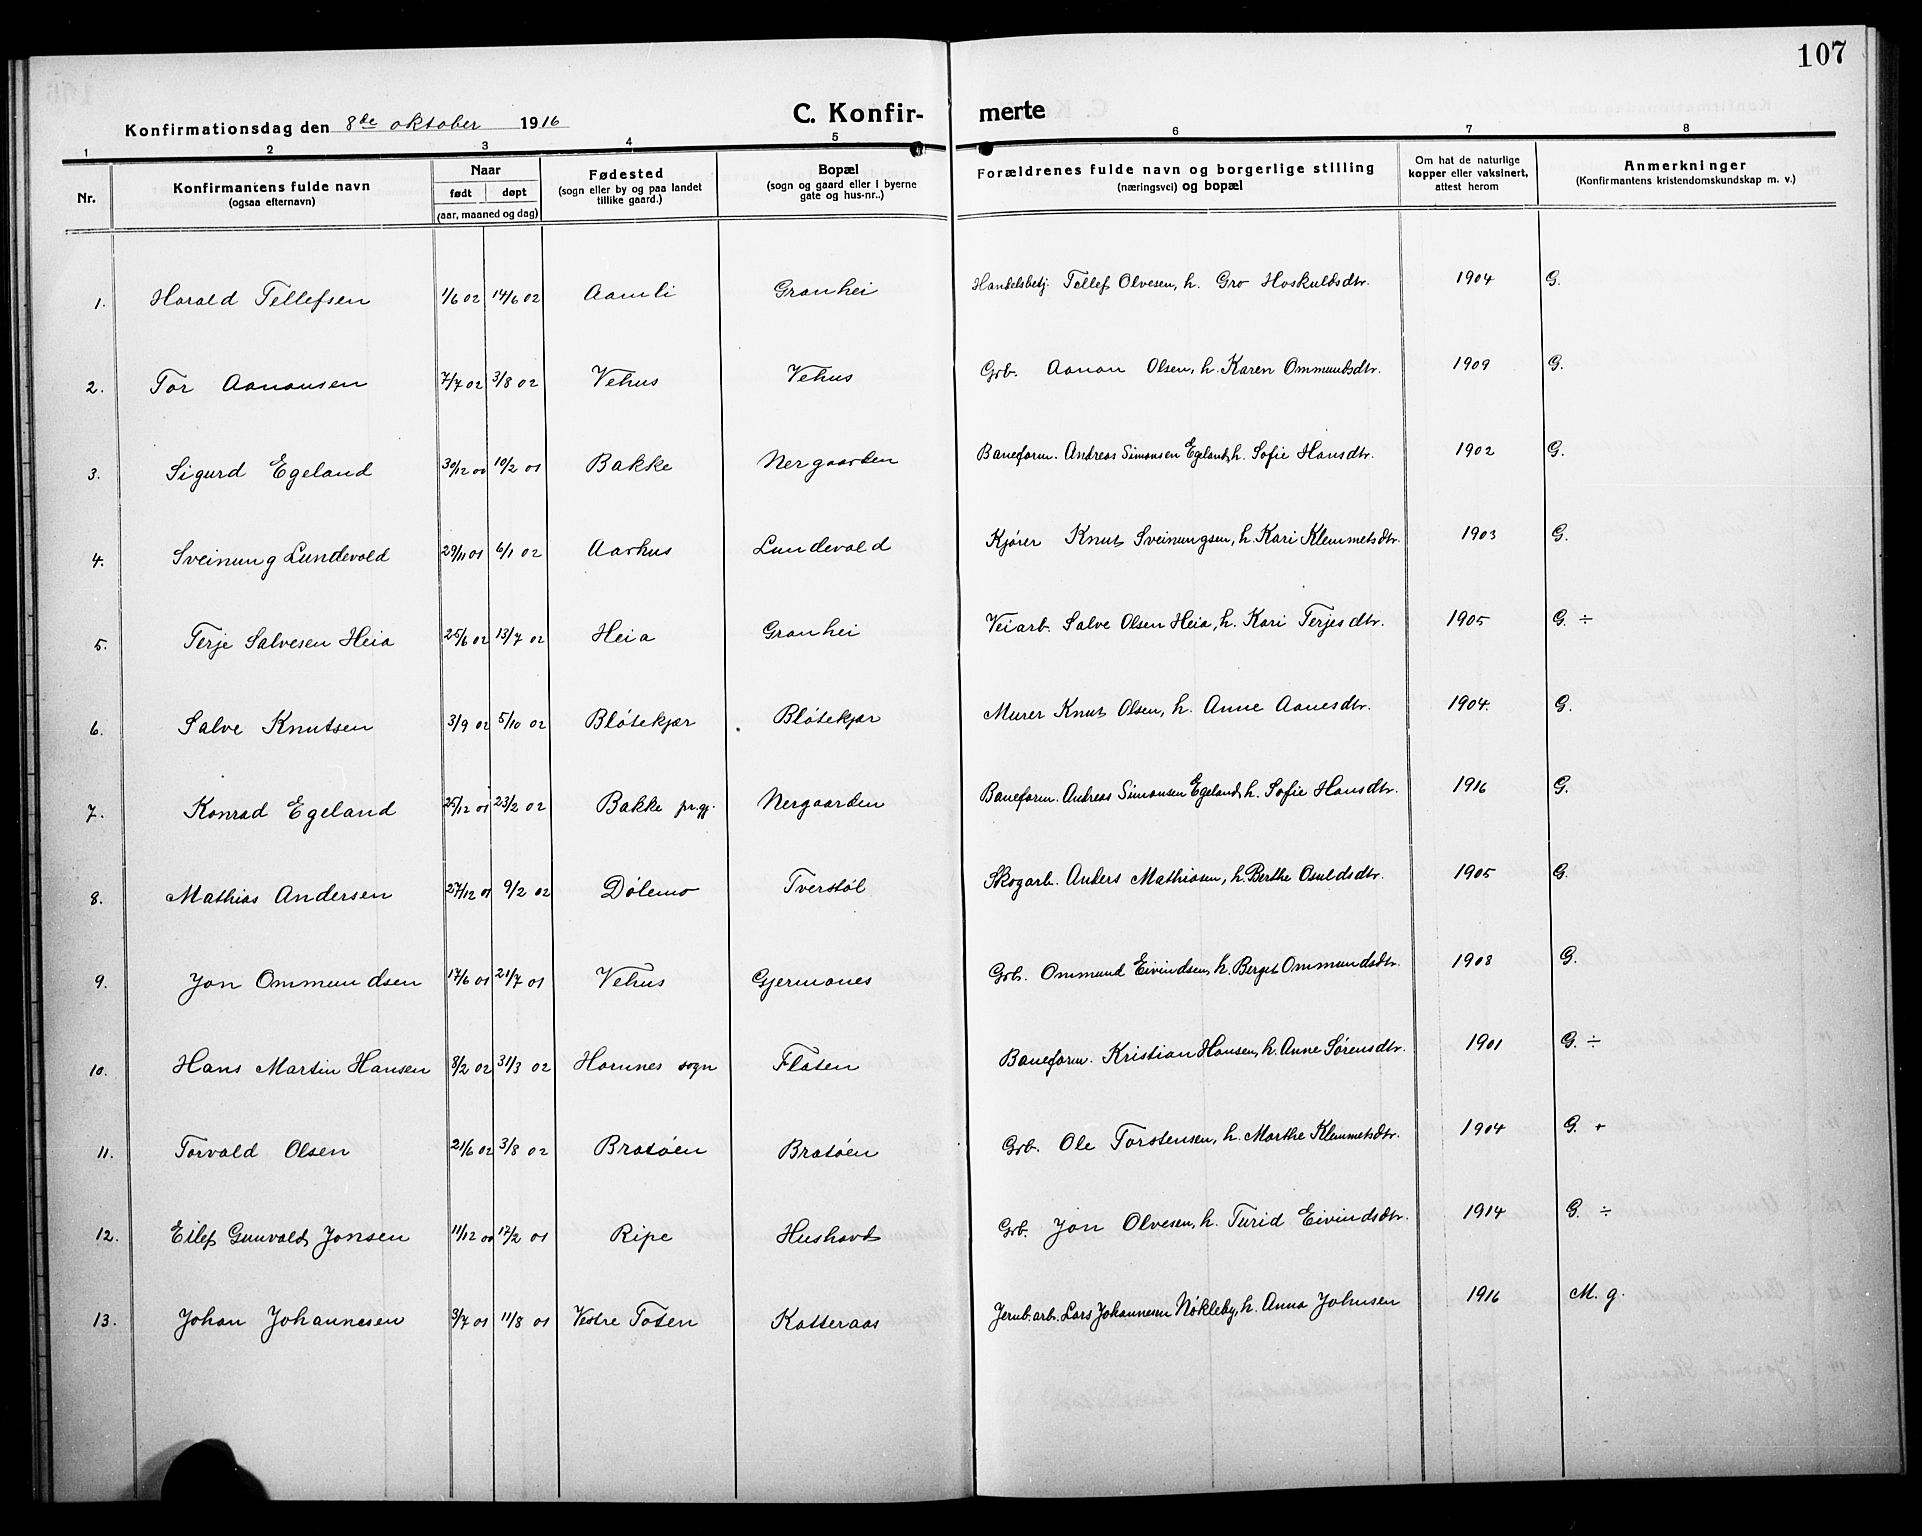 107
C. Konfir- merte
Konfirmationsdag den 8de oktober 1916
1 2 3 4 5 6 7 8
Nr. Konfirmantens fulde navn (ogsaa efternavn) Naar født døpt (aar, maaned og dag) Fødested (sogn eller by og paa landet tillike gaard.) Bopæl (sogn og gaard eller i byerne gate og hus-nr..) Forældrenes fulde navn og borgerlige stilling (næringsvei) og bopæl Om hat de naturlige kopper eller vaksinert, attest herom Anmerkninger (Konfirmantens kristendomskundskap m. v.)
1. Harald Tellefsen 1/6 02 14/6 02 Aamli Granhei Handelsbetj. Tellef Olvesen, h. Gro Hoskuldsdtr. 1904 G.
2. Tor Aanonsen 7/7 02 3/8 02 Vehus Vehus Grb. Aanon Olsen, h. Karen Ommundsdtr. 1909 G.
3. Sigurd Egeland 30/12 00 10/2 01 Bakke Nergaarden Baneform. Andreas Simonsen Egeland, h. Sofie Hansdtr. 1902 G.
4. Sveinung Lundevold 29/11 01 6/1 02 Aarhus Lundevold Kjører Knut Sveinungsen, h. Kari Klemmetsdtr. 1903 G.
5. Terje Salvesen Heia 25/6 02 13/7 02 Heia Granhei Veiarb. Salve Olsen Heia, h. Kari Terjesdtr. 1905 G. ÷
6. Salve Knutsen 3/9 02 5/10 02 Bløtekjær Bløtekjær Murer Knut Olsen, h. Anne Aanesdtr. 1904. G.
7. Konrad Egeland 25/12 01 23/2 02 Bakke pr.gj. Nergaarden Baneform. Andreas Simonsen Egeland, h. Sofie Hansdtr. 1916 G.
8. Mathias Andersen 27/12 01 9/2 02 Dølemo Tverstøl Skogarb. Anders Mathiasen, h. Berthe Osuldsdtr. 1905 G.
9. Jon Ommundsen 17/6 01 21/7 01 Vehus Gjermanes Grb. Ommund Eivindsen, h. Berget Ommundsdtr. 1908 G.
10. Hans Martin Hansen 8/2 02 31/3 02 Hornnes sogn Flaten Baneform. Kristian Hansen, h. Anne Sørensdtr. 1901 G. ÷
11. Torvald Olsen 21/6 02 3/8 02 Bratøen Bratøen Grb. Ole Torstensen, h. Marthe Klemmetsdtr. 1904 G. +
12. Eilef Gunvald Jonsen 11/12 00 17/2 01 Ripe Hushovd Grb. Jon Olvesen, h. Turid Eivindsdtr. 1914 G. ÷
13. Johan Johannesen 3/7 01 11/8 01 Vestre Toten Katteraas Jernb.arb. Lars Johannesen Nøkleby, h. Anna Johnsen 1916 M. g.